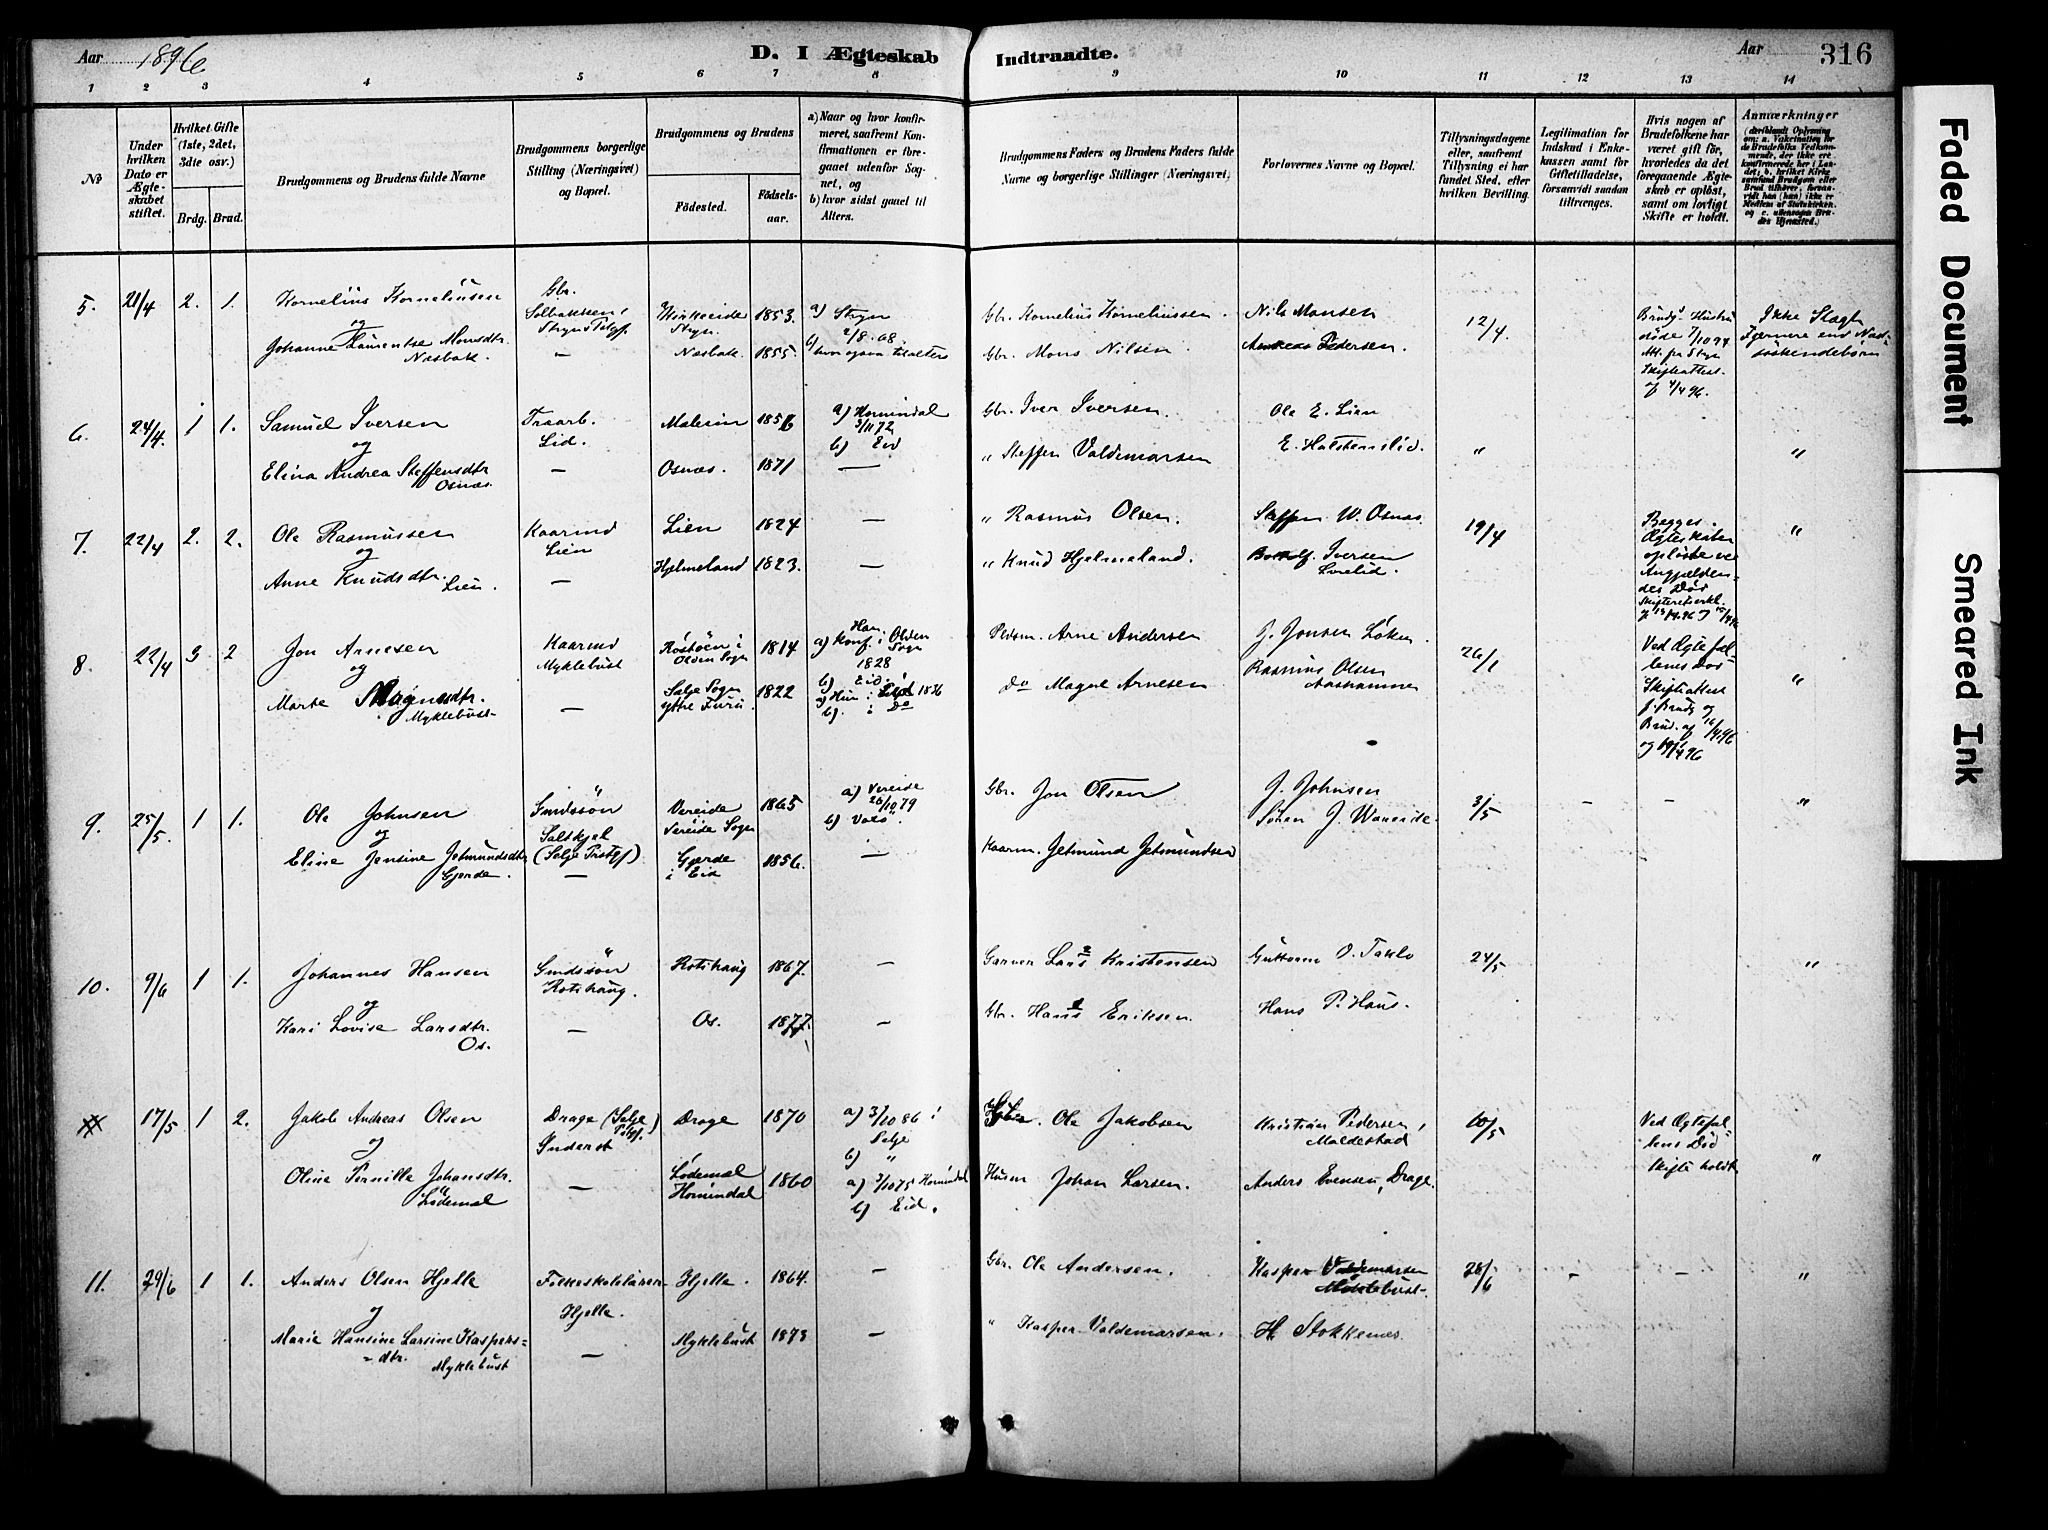 Aar 1896
D. I Ægteskab Indtraadte.
Aar 316
1 2 3 4 5 6 7 8 9 10 11 12 13 14
No
Under hvilken Dato er Ægteskabet stiftet.
Hvilket Gifte (1ste, 2det, 3die osv.)
Brdg. Brud.
Brudgommens og Brudens fulde Navne
Brudgommens borgerlige Stilling (Næringsvei) og Bopæl.
Brudgommens og Brudens
Fødested.
Fødselsaar.
a) Naar og hvor konfirmeret, saafremt Konfirmationen er foregaaet udenfor Sognet, og
b) hvor sidst gaaet til Alters.
Brudgommens Faders og Brudens Faders fulde Navne og borgerlige Stillinger (Næringsvei).
Forlovernes Navne og Bopæl.
Tillysningsdagene eller, saafremt Tillysning ei har fundet Sted, efter hvilken Bevilling.
Legitimation for Indskud i Enkekassen samt for Giftetilladelse, forsaavidt saadan tiltrænges.
Hvis nogen af Brudefolkene har været gift før, hvorledes da det foregaaende Ægteskab er opløst, samt om lovligt Skifte er holdt.
Anmærkninger
5. 21/4 2. 1. Kornelius Korneliussen
og
Johanne Laurentse Monsdtr.
Næsbak.
Gbr.
Solbakken,
Stryn Pstgf.
—
Stryn. 1853.
Næsbak. 1855.
a) Stryn
2/8. 68.
Gbr. Kornelius Korneliussen.
Gbr. Mons Nilsen.
Nils Monsen
Andreas Pedersen.
12/4
Brudg. Hustru
døde 7/10 94
Att. fra Stryn
Skifteattest
af 4/4 96.
Ikke Slægt
Nærmere end Næst-
søskendebørn
6. 24/4. 1 1. Samuel Iversen
og
Elina Andrea Steffensdtr
Osnæs.
Traarb.
Lid.
—
Malesin 1856
Osnæs. 1871
a) Hornindal
3/11 72
b) Eid
—
Gbr. Iver Iversen.
" Steffen Valdemarsen
Ole E. Lien
E. Halstenslid.
"
"
7. 22/4 2. 2. Ole Rasmussen
og
Anne Knudsdtr.
Lien.
Kaarmd
Lien
—
Lien 1824
Hjelmeland 1823.
—
" Rasmus Olsen.
" Knud Hjelmeland.
Steffen W. Osnæs.
Iversen
19/4
Begges
Ægteskaber
opløste ved
Angjælden-
des Død
"
8. 22/4 3 2 Jon Arnesen
og
Marte Magnesdtr.
Myklebust
Kaarmd
Myklebust
—
Olden Sogn 1814
Selje Sogn
Ytre Furu. 1822
Han
a) Konf. i Olden
Sogn
1828
b) Eid.
a) Hun i Eid 1836
b) i Do
Pldsm. Arne Andersen
Do Magne Arnesen
J. Jonsen Løken
Rasmus Olsen
Aashammer
26/1
Ved Ægtefæl-
lens Død
Skifteattest
f. Brudg og
Brud. af 16/4 96
og 19/4 96
"
9. 25/5. 1 1. Ole Johnsen
og
Eline Jensine Jetmundsdtr
Gjerde.
Inderst
Salskjel
(Selje Prstgf)
—
Vereide
Vereide Sogn 1865
Gjerde
i Eid 1856.
a) Vereide
26/10 79
b) Vols".
—
Gbr. Jon Olsen
Kaarm. Jetmund Jetmundsen
J. Johnsen
Søren J. Wanvide.
3/5
—
—
"
10. 9/6 1 1. Johannes Hansen
og
Kari Lovise Larsdtr.
Os.
Gmdssøn
Rotihaug.
—
Rotihaug 1867.
Os. 1877.
—
—
Garver Lars 2 Kristensen
Gbr. Hans 1 Eriksen.
Guttorm O. Taklo
Hans P. Haus.
24/5
"
17/5 1 2. Jakob Andreas Olsen
og
Oline Pernille Johansdtr.
Lødemel
Drage (Selje Pstgf.)
Inderst
—
Drage 1870
Lødemel
Hornindal 1860
a) 3/10 86 i
Selje
b) "
a) 3/10 75 Hornindal
b) Eid.
Gbr. Ole Jakobsen
Husm Johan Larsen.
Kristian Pedersen,
Maldestad
Anders Evensen, Drage.
10/5
Ved Ægtefæl-
lens Død
Skifte holdt
"
11. 29/6 1 1. Anders Olsen Hjelle
og
Marie Hansine Larsine Kaspers-
=dtr.
Myklebust
Folkeskolelærer
Hjelle.
—
Hjelle. 1864.
Myklebust 1873
—
—
Gbr. Ole Andersen.
" Kasper Valdemarsen.
Kasper Valdemarsen
Myklebust.
H. Stokkenæs.
28/6
—
—
"
Faded Document
Smeared Ink